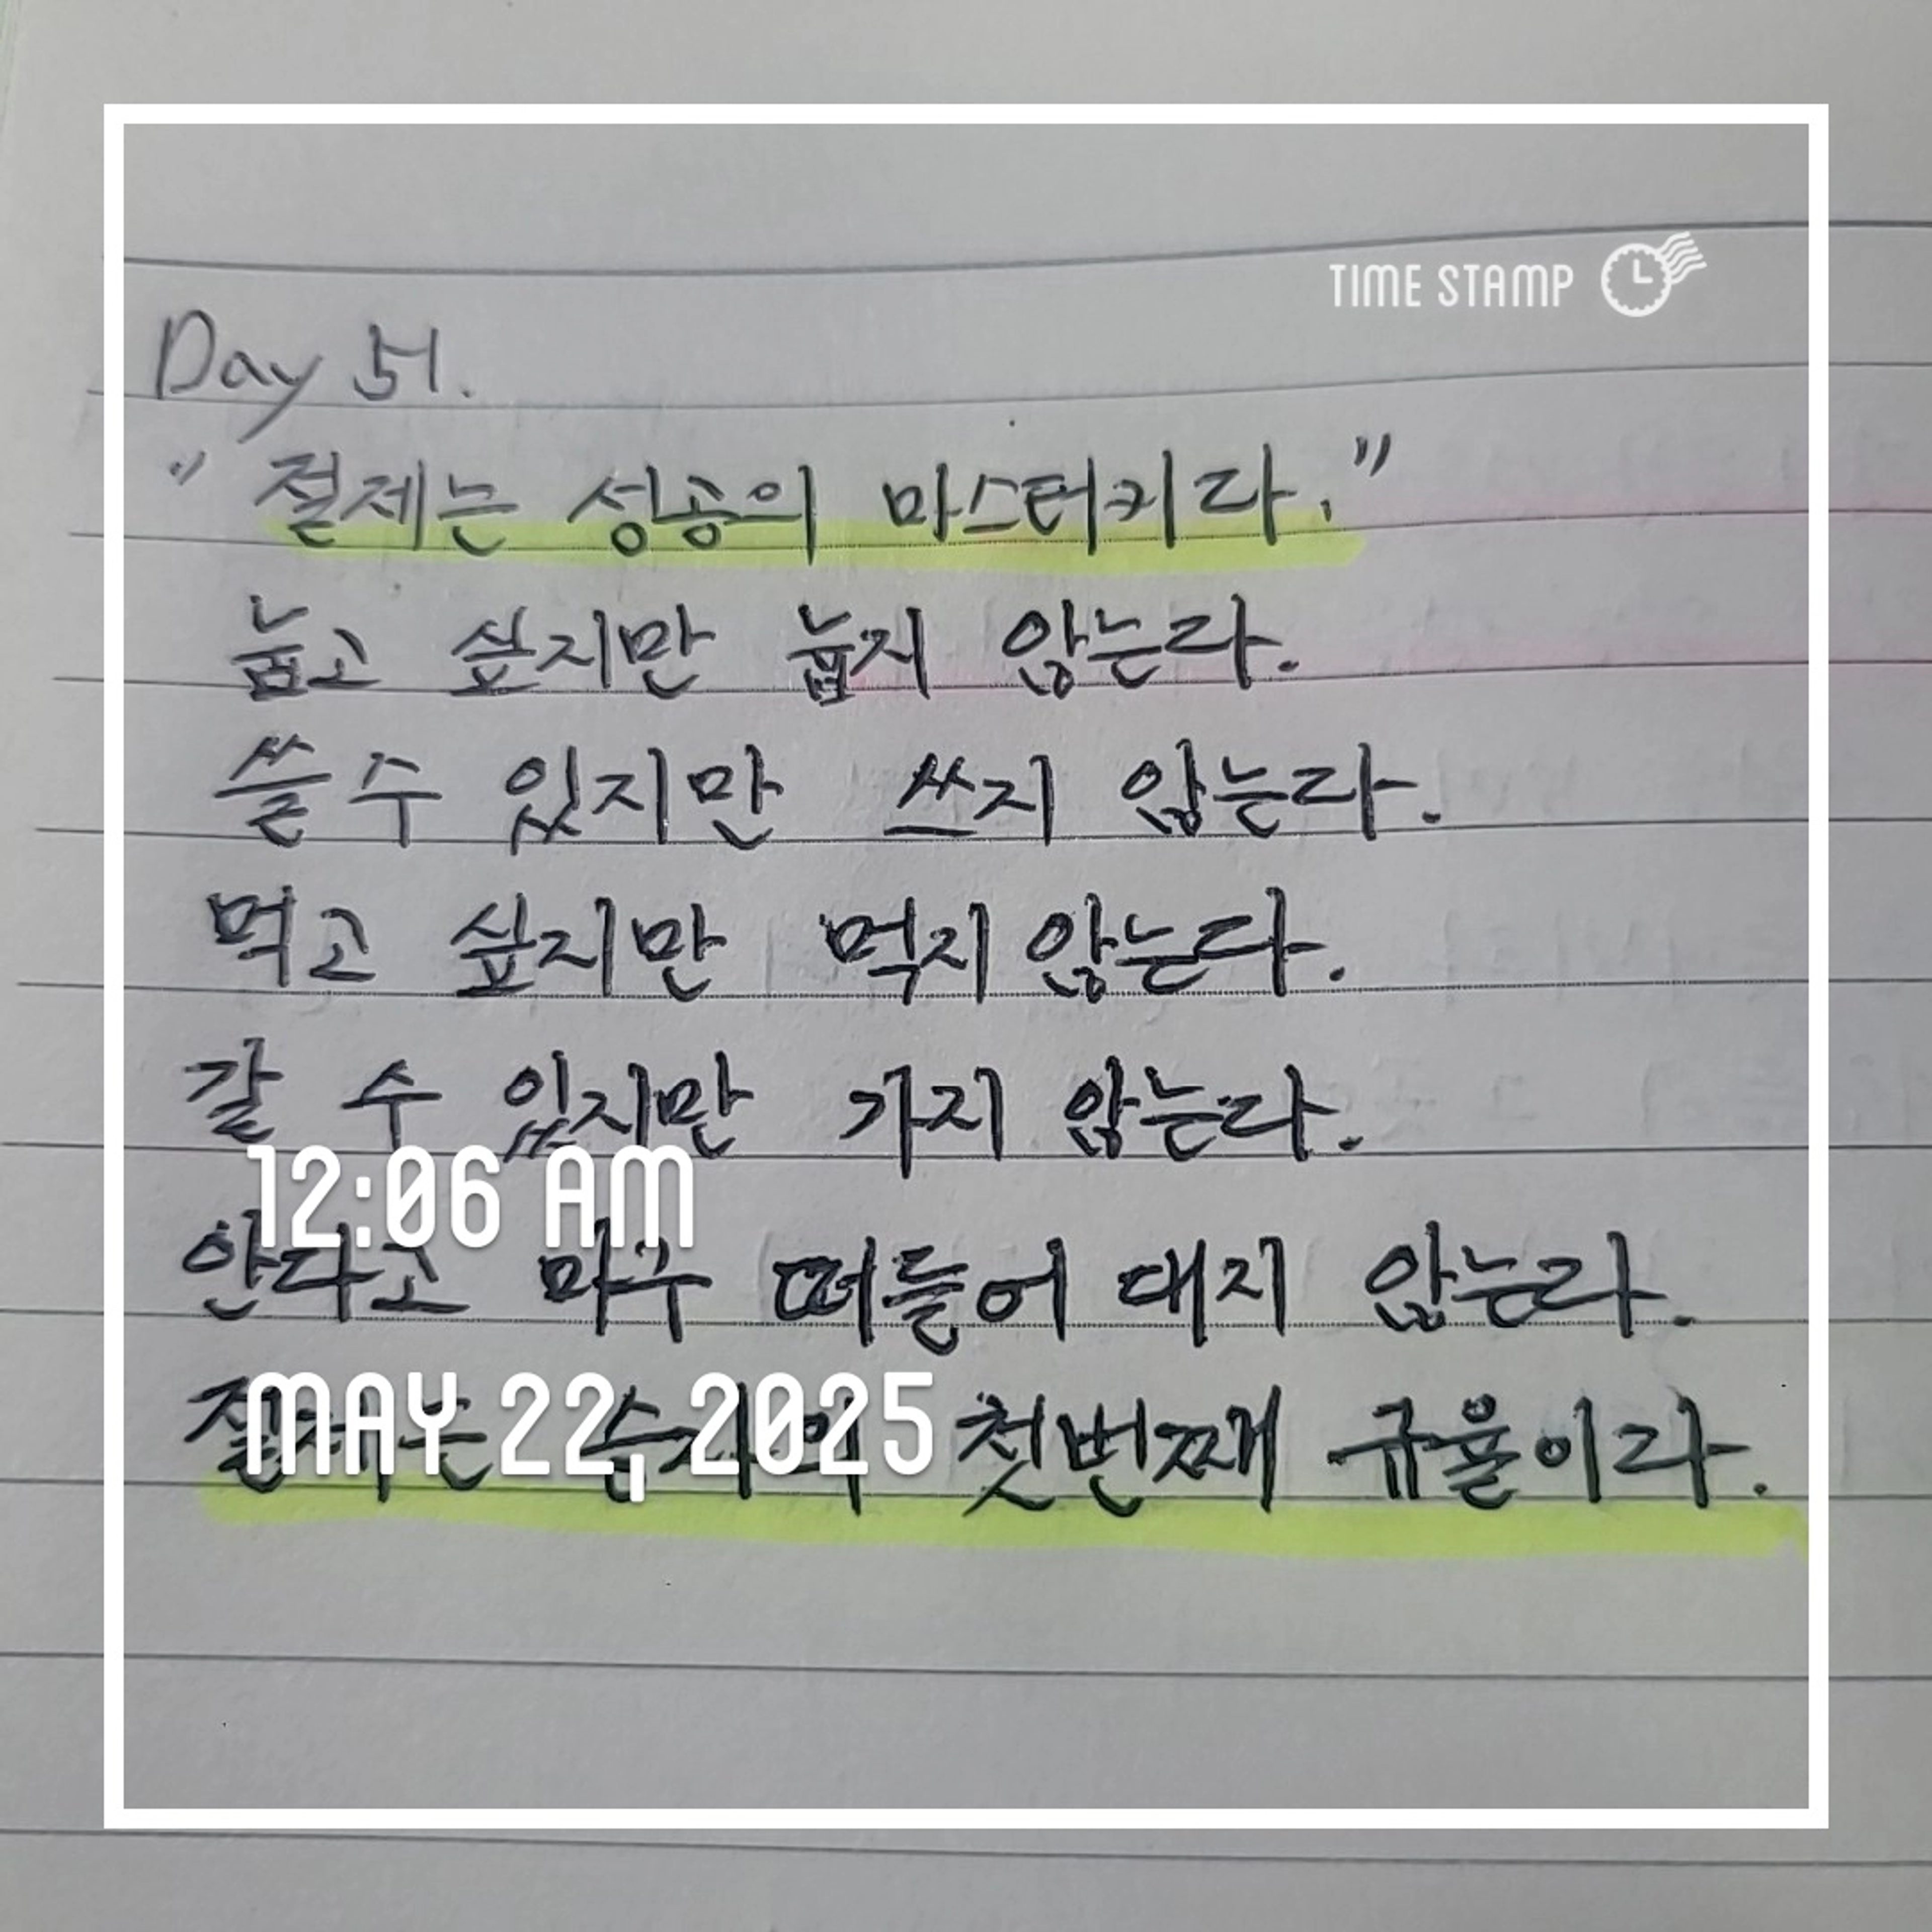 TIME STAMP
Day 51.
" 절제는 성공의 마스터키다. "
눕고 싶지만 눕지 않는다.
쓸 수 있지만 쓰지 않는다.
먹고 싶지만 먹지 않는다.
갈 수 있지만 가지 않는다.
12:06 AM
안다고 마구 떠들어 대지 않는다.
MAY 22, 2025
절제는 첫번째 규율이다.